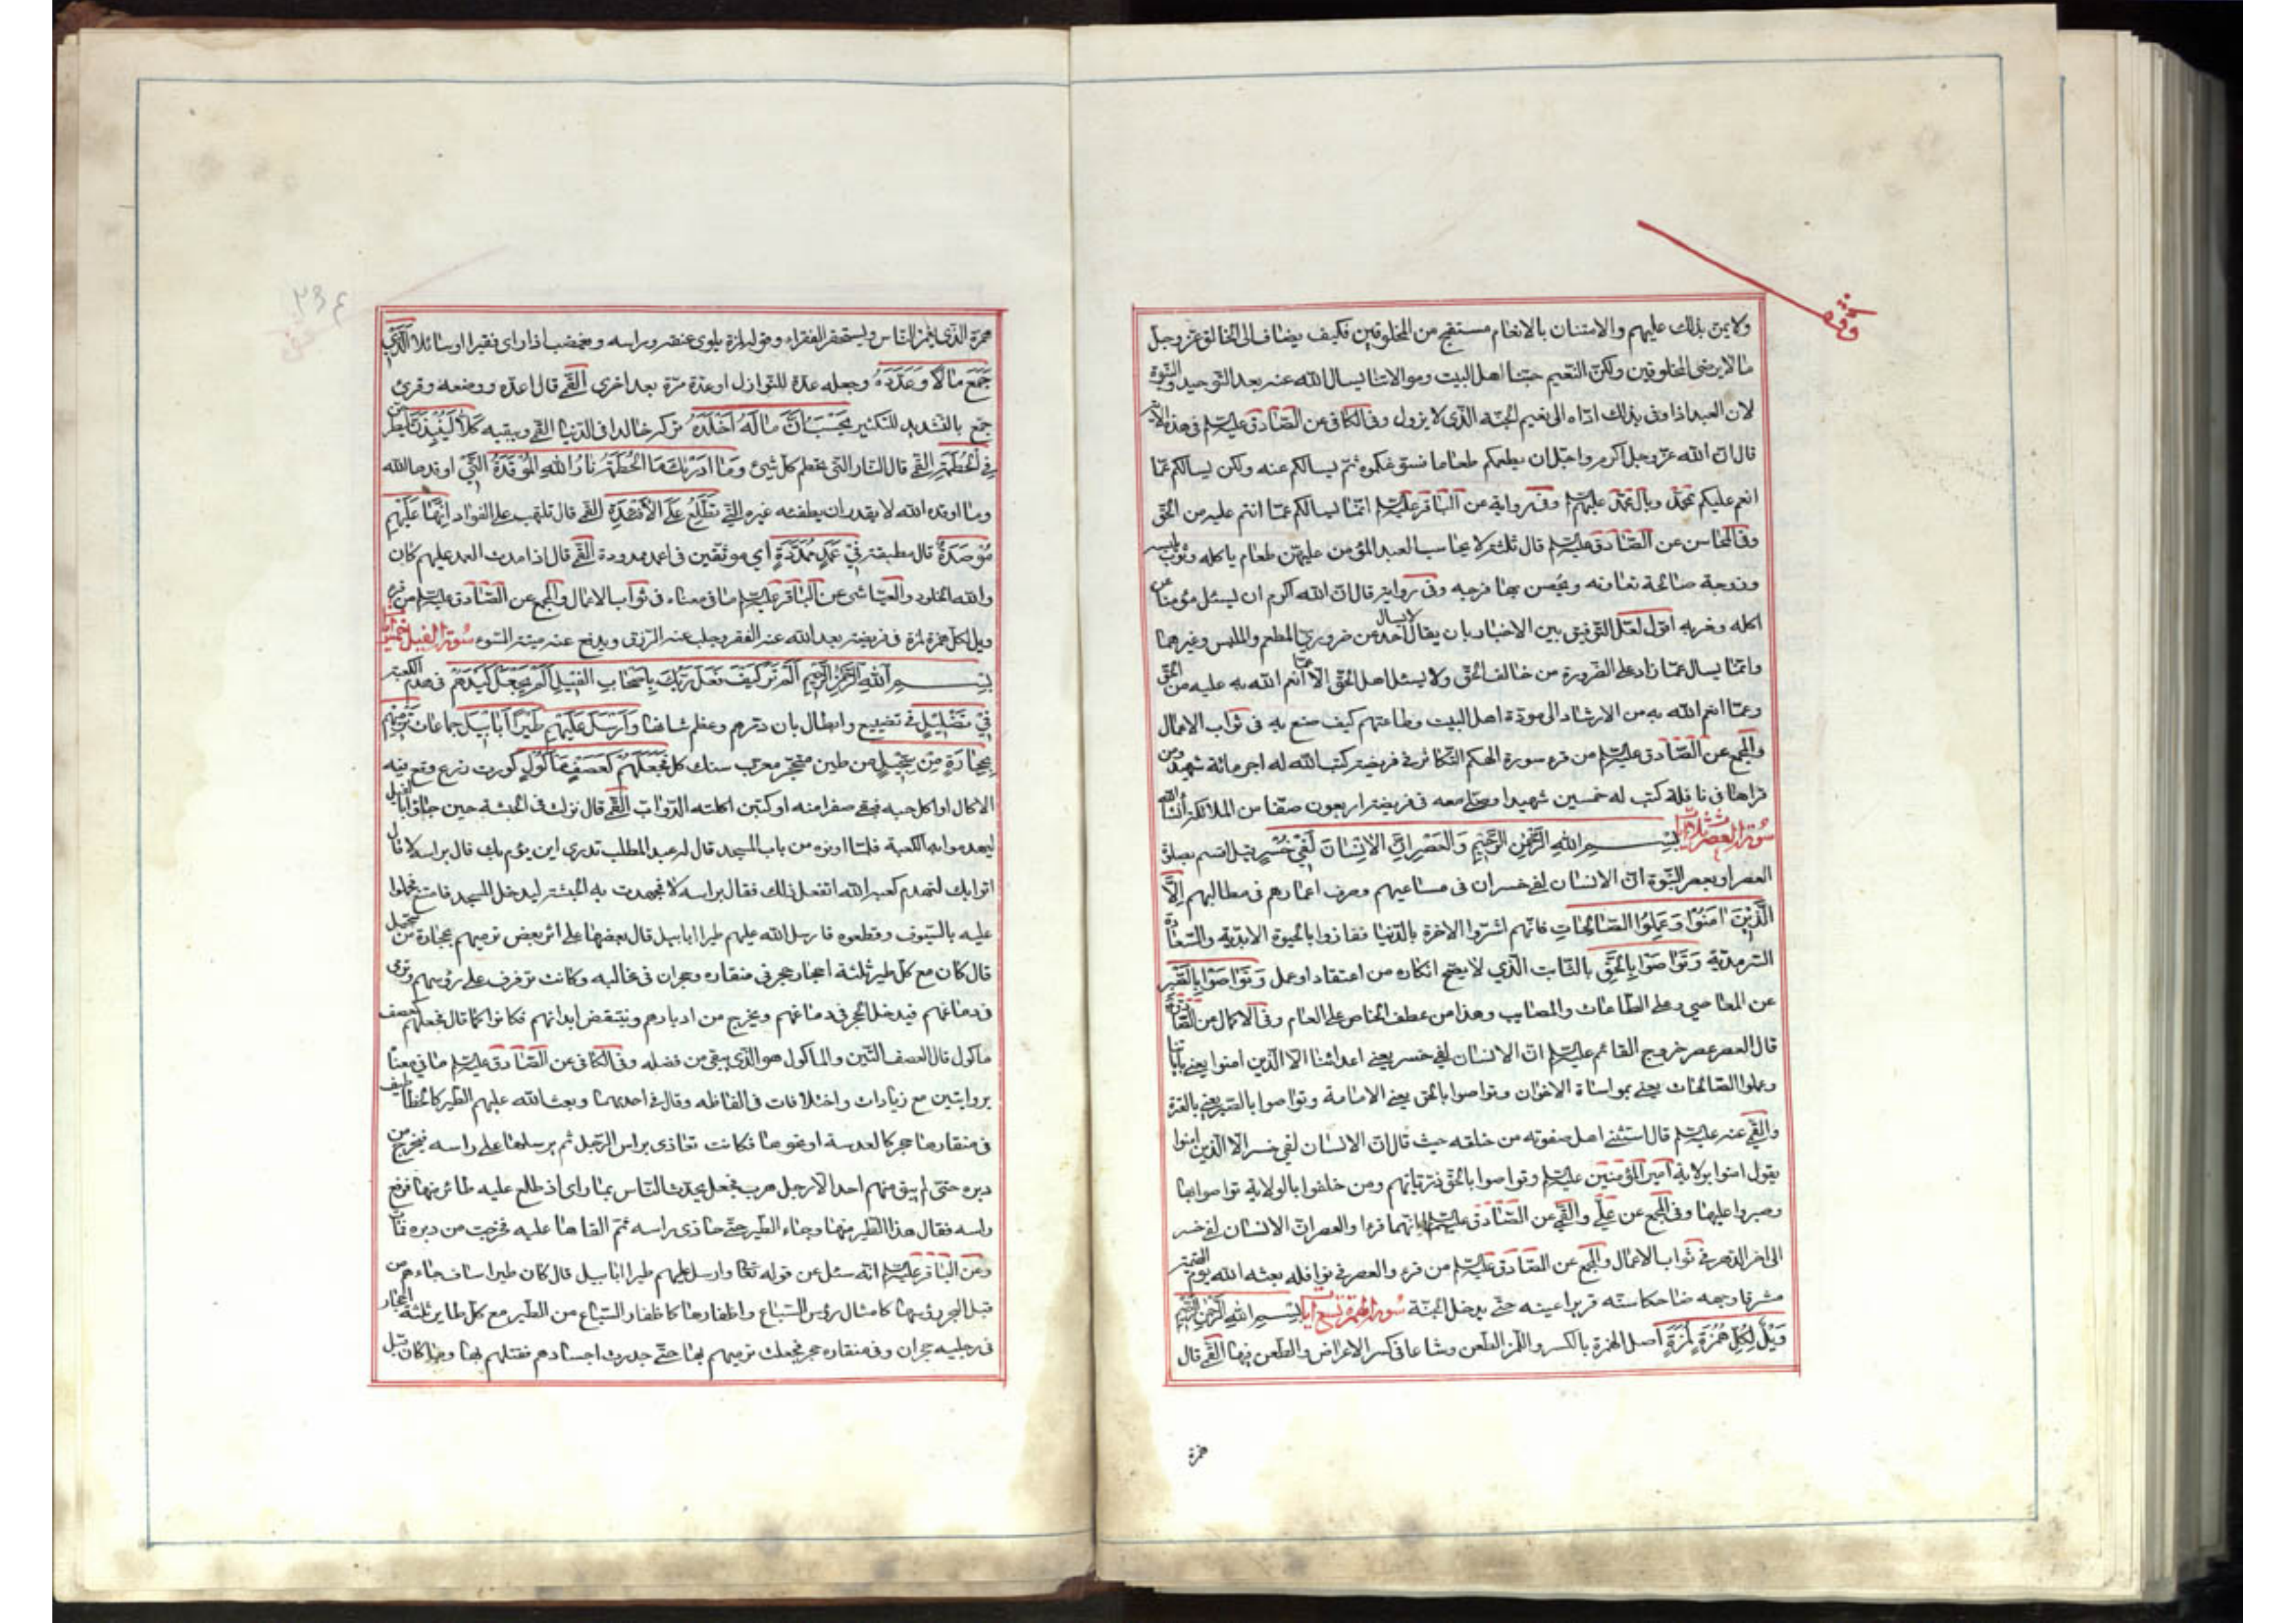 وقف
ولا يمن بذلك عليهم والامتنان بالانعام مستقبح من المخلوقين فكيف يضاف الى الخالق عز وجل
ما لا يرضى المخلوقين ولكن النعيم حبنا اهل البيت وموالاتنا يسال الله عنه بعد التوحيد والنبوة
لان العبد اذا وفى بذلك اداه الى نعيم الجنة الذى لا يزول وفى الكافى عن الصادق عليه السلم فى هذه الاية
قال ان الله عز وجل اكرم واجل ان يطعمكم طعاما فسوغكموه ثم يسالكم عنه ولكن يسالكم عما
انعم عليكم بمحمد وبال محمد عليهم وفى رواية عن الباقر عليه السلم انما يسالكم عما انتم عليه من الحق
وفى المحاسن عن الصادق عليه السلم قال ثلثة لا يحاسب العبد المؤمن عليهن طعام ياكله وثوب يلبسه
وزوجة صالحة تعاونه ويحصن بها فرجه وفى رواية قال ان الله اكرم ان يسئل مؤمنا عن
اكله وشربه اقول لعل التوفيق بين الاخبار بان يقال لا يسال احد عن ضروري المطعم والملبس وغيرهما
وانما يسال عما زاد على الضرورة من خالف الحق ولا يسئل اهل الحق الا عما انعم الله به عليه من الحق
وعما انعم الله به من الارشاد الى مودة اهل البيت وطاعتهم كيف صنع به فى ثواب الاعمال
والمجمع عن الصادق عليه السلم من قرء سورة الهكم التكاثر فى فريضة كتب الله له اجر مائة شهيد ومن
قراها فى نافلة كتب له خمسين شهيدا وصلى معه فى فريضته اربعون صفا من الملائكة انشاء الله
سورة العصر ثلث ايات بسم الله الرحمن الرحيم والعصر ان الانسان لفي خسر قيل اقسم بصلوة
العصر او بعصر النبوة ان الانسان لفى خسران فى مساعيهم وصرف اعمارهم فى مطالبهم الا
الذين امنوا وعملوا الصالحات فانهم اشتروا الاخرة بالدنيا ففازوا بالحيوة الابدية والسعادة
السرمدية وتواصوا بالحق بالثابت الذي لا يصح انكاره من اعتقاد او عمل وتواصوا بالصبر
عن المعاصي وعلى الطاعات والمصايب وهذا من عطف الخاص على العام وفى الاكمال عن الصادق
قال العصر عصر خروج القائم عليه السلم ان الانسان لفى خسر يعنى اعدائنا الا الذين امنوا يعنى باياتنا
وعملوا الصالحات يعنى بمواساة الاخوان وتواصوا بالحق يعنى الامامة وتواصوا بالصبر يعنى بالعترة
والقمي عنه عليه السلم قال استثنى اهل صفوته من خلقه حيث قال ان الانسان لفى خسر الا الذين امنوا
يقول امنوا بولاية امير المؤمنين عليه السلم وتواصوا بالحق ذرياتهم ومن خلفوا بالولاية تواصوا بها
وصبروا عليها وفى المجمع عن علي والقمي عن الصادق عليهما السلم انهما قرءا والعصر ان الانسان لفى خسر
الى اخر الدهر فى ثواب الاعمال والمجمع عن الصادق عليه السلم من قرء والعصر فى نوافله بعثه الله يوم القيمة
مشرقا وجهه ضاحكا سنه قريرا عينه حتى يدخل الجنة سورة الهمزة تسع ايات بسم الله الرحمن الرحيم
ويل لكل همزة لمزة اصل الهمزة بالكسر واللمز الطعن وشاعا فى كسر الاعراض والطعن فيها القمى قال
همزة
همزة الذى يغمز الناس ويستحقر الفقراء وقوله لمزة يلوى عنقه وراسه ويغضب اذا راى فقيرا او سائلا الذى
جمع مالا وعدده وجعله عدة للنوازل او عدة مرة بعد اخرى القمى قال اعده ووضعه وقرئ
جمع بالتشديد للتكثير يحسب ان ماله اخلده تركه خالدا فى الدنيا القمى ويبقيه كلا لينبذن ليطرحن
في الحطمة القمى قال النار التى تحطم كل شيئ وما ادريك ما الحطمة نار الله الموقدة التى اوقدها الله
وما اوقده الله لا يقدر ان يطفئه غيره التي تطلع على الافئدة القمى قال تلتهب على الفواد انها عليهم
مؤصدة قال مطبقة في عمد ممددة اي موثقين فى اعمد ممدودة القمى قال اذا مدت العمد عليهم كان
والله الخلود والعياشى عن الباقر عليه السلم ما فى معناه فى ثواب الاعمال والمجمع عن الصادق عليه السلم من قرء
ويل لكل همزة لمزة فى فريضته بعد الله عنه الفقر وجلب عنه الرزق ويدفع عنه ميتة السوء سورة الفيل خمس ايات
بسم الله الرحمن الرحيم الم تر كيف فعل ربك باصحاب الفيل الم يجعل كيدهم فى هدم الكعبة
في تضليل فى تضييع وابطال بان دمرهم وعظم شانها وارسل عليهم طيرا ابابيل جماعات ترميهم
بحجارة من سجيل من طين متحجر معرب سنك كل فجعلهم كعصف ماكول كورق زرع وقع فيه
الاكال او اكل حبه فبقى صفرا منه او كتبن اكلته الدواب القمى قال نزلت فى الحبشة حين جاؤا بالفيل
ليهدموا به الكعبة فلما ادنوه من باب المسجد قال له عبد المطلب تدرى اين يؤم بك قال براسه لا قال
اتوا بك لتهدم كعبة الله اتفعل ذلك فقال براسه لا فجهدت به الحبشة ليدخل المسجد فامتنع فحملوا
عليه بالسيوف وقطعوه فارسل الله عليهم طيرا ابابيل قال بعضها على اثر بعض ترميهم بحجارة من سجيل
قال كان مع كل طير ثلثة احجار حجر فى منقاره وحجران فى مخالبه وكانت ترفرف على رؤسهم وترمى
فى دماغهم فيدخل الحجر فى دماغهم ويخرج من ادبارهم وينتقض ابدانهم فكانوا كما قال فجعلهم كعصف
ماكول قال العصف التبن والماكول هو الذى يبقى من فضله وفى الكافى عن الصادق عليه السلم ما فى معناه
بروايتين مع زيادات واختلافات فى الفاظه وقال فى احديهما وبعث الله عليهم الطير كالخطاطيف
فى منقارها حجر كالعدسة او نحوها فكانت تحاذى براس الرجل ثم يرسلها على راسه فيخرج من
دبره حتى لم يبق منهم احد الا رجل هرب فجعل يحدث الناس بما راى اذ طلع عليه طائر منها فرفع
راسه فقال هذا الطير منها وجاء الطير حتى حاذى براسه ثم القاها عليه فخرجت من دبره فمات
وعن الباقر عليه السلم انه سئل عن قوله تعالى وارسل عليهم طيرا ابابيل قال كان طيرا ساف جاءهم من
قبل البحر رؤسها كامثال رؤس السباع واظفارها كاظفار السباع من الطير مع كل طاير ثلثة احجار
فى رجليه حجران وفى منقاره حجر فجعلت ترميهم بها حتى جدرت اجسادهم فقتلهم بها وما كان قبل